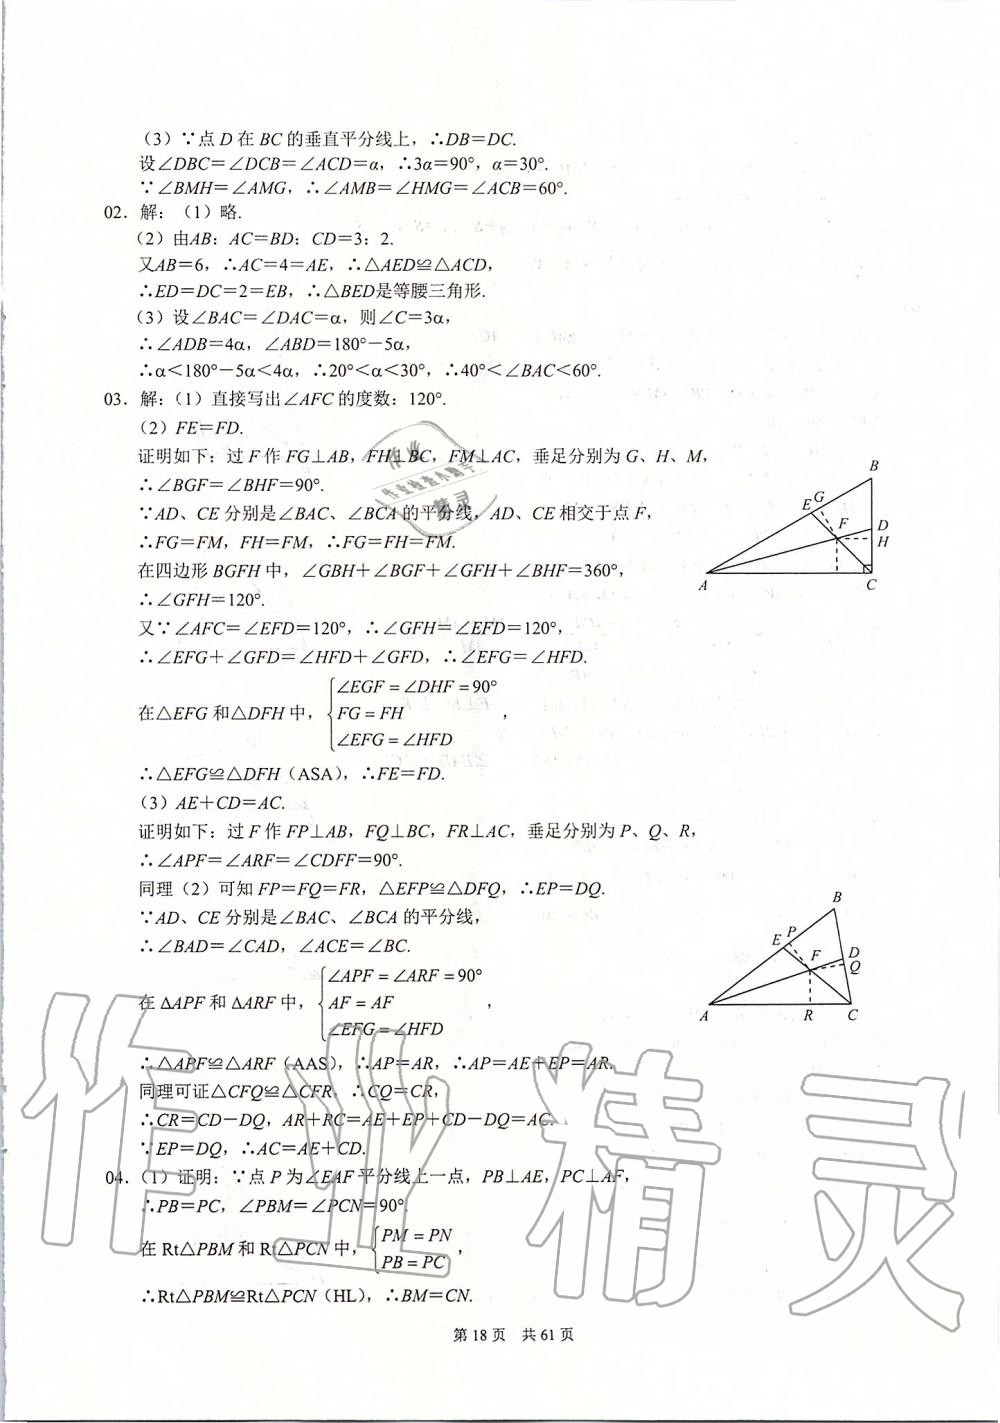 （3）∵点 D 在 BC 的垂直平分线上，∴DB＝DC.
设∠DBC＝∠DCB＝∠ACD＝α，∴3α＝90°，α＝30°.
∵∠BMH＝∠AMG，∴∠AMB＝∠HMG＝∠ACB＝60°.
02．解：（1）略.
（2）由AB：AC＝BD：CD＝3：2.
又AB＝6，∴AC＝4＝AE，∴△AED≌△ACD，
∴ED＝DC＝2＝EB，∴△BED是等腰三角形.
（3）设∠BAC＝∠DAC＝α，则∠C＝3α，
∴∠ADB＝4α，∠ABD＝180°－5α，
∴α＜180°－5α＜4α，∴20°＜α＜30°，∴40°＜∠BAC＜60°.
03．解：（1）直接写出∠AFC 的度数：120°.
（2）FE＝FD.
证明如下：过 F 作 FG⊥AB，FH⊥BC，FM⊥AC，垂足分别为 G、H、M，
∴∠BGF＝∠BHF＝90°.
∵AD、CE 分别是∠BAC、∠BCA 的平分线，AD、CE 相交于点 F，
∴FG＝FM，FH＝FM，∴FG＝FH＝FM.
在四边形 BGFH 中，∠GBH＋∠BGF＋∠GFH＋∠BHF＝360°，
∴∠GFH＝120°.
又∵∠AFC＝∠EFD＝120°，∴∠GFH＝∠EFD＝120°，
∴∠EFG＋∠GFD＝∠HFD＋∠GFD，∴∠EFG＝∠HFD.
B
G
E
F
D
H
A
C
∠EGF＝∠DHF＝90°
在△EFG 和△DFH 中，{ FG＝FH ，
∠EFG＝∠HFD
∴△EFG≌△DFH（ASA），∴FE＝FD.
（3）AE＋CD＝AC.
证明如下：过 F 作 FP⊥AB，FQ⊥BC，FR⊥AC，垂足分别为 P、Q、R，
∴∠APF＝∠ARF＝∠CDFF＝90°.
同理（2）可知 FP＝FQ＝FR，△EFP≌△DFQ，∴EP＝DQ.
∵AD、CE 分别是∠BAC、∠BCA 的平分线，
∴∠BAD＝∠CAD，∠ACE＝∠BC.
B
P
E
F
D
Q
A
R
C
∠APF＝∠ARF＝90°
在 ΔAPF 和 ΔARF 中，{ AF＝AF ，
∠EFG＝∠HFD
∴△APF≌△ARF（AAS），∴AP＝AR，∴AP＝AE＋EP＝AR.
同理可证△CFQ≌△CFR，∴CQ＝CR，
∴CR＝CD－DQ，AR＋RC＝AE＋EP＋CD－DQ＝AC.
∵EP＝DQ，∴AC＝AE＋CD.
04．（1）证明：∵点 P 为∠EAF 平分线上一点，PB⊥AE，PC⊥AF，
∴PB＝PC，∠PBM＝∠PCN＝90°.
PM＝PN
在 Rt△PBM 和 Rt△PCN 中，{ ，
PB＝PC
∴Rt△PBM≌Rt△PCN（HL），∴BM＝CN.
第 18 页 共 61 页
作业精灵